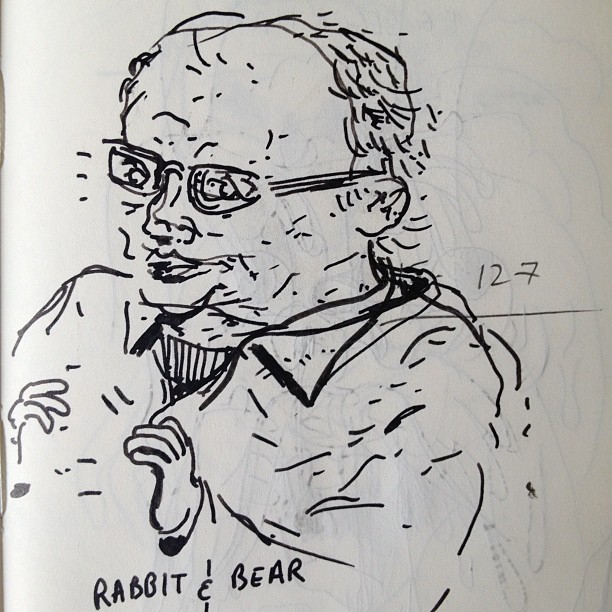 12-7
RABBIT & BEAR